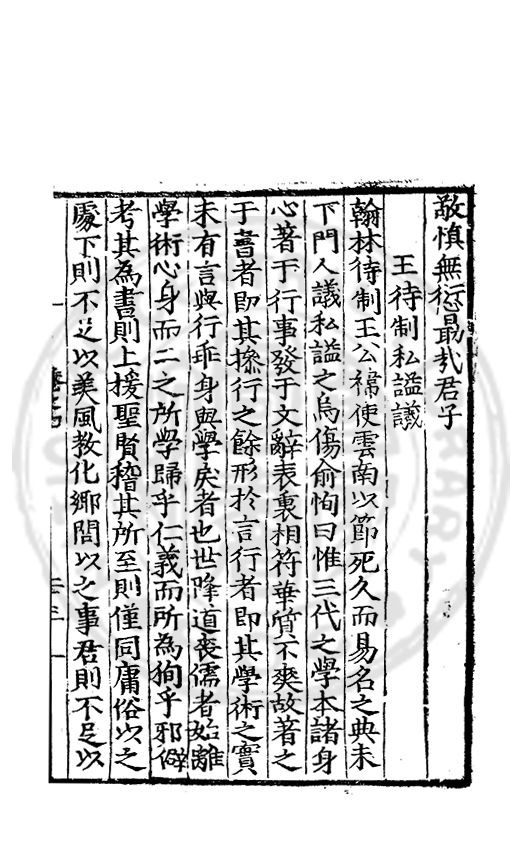 敬慎無愆最哉君子
王待制私謚議
翰林待制王公褘使雲南以節死久而易名之典未
下門人議私謚之烏傷俞恂曰惟三代之學本諸身
心著于行事發于文辭表裏相符華質不爽故著之
于書者即其操行之餘形於言行者即其學術之實
未有言與行乖身與學戾者也世降道喪儒者始離
學術心身而二之所學歸乎仁義而所為徇乎邪僻
考其為書則上援聖賢稽其所至則僅同庸俗以之
處下則不足以美風教化鄉閭以之事君則不足以